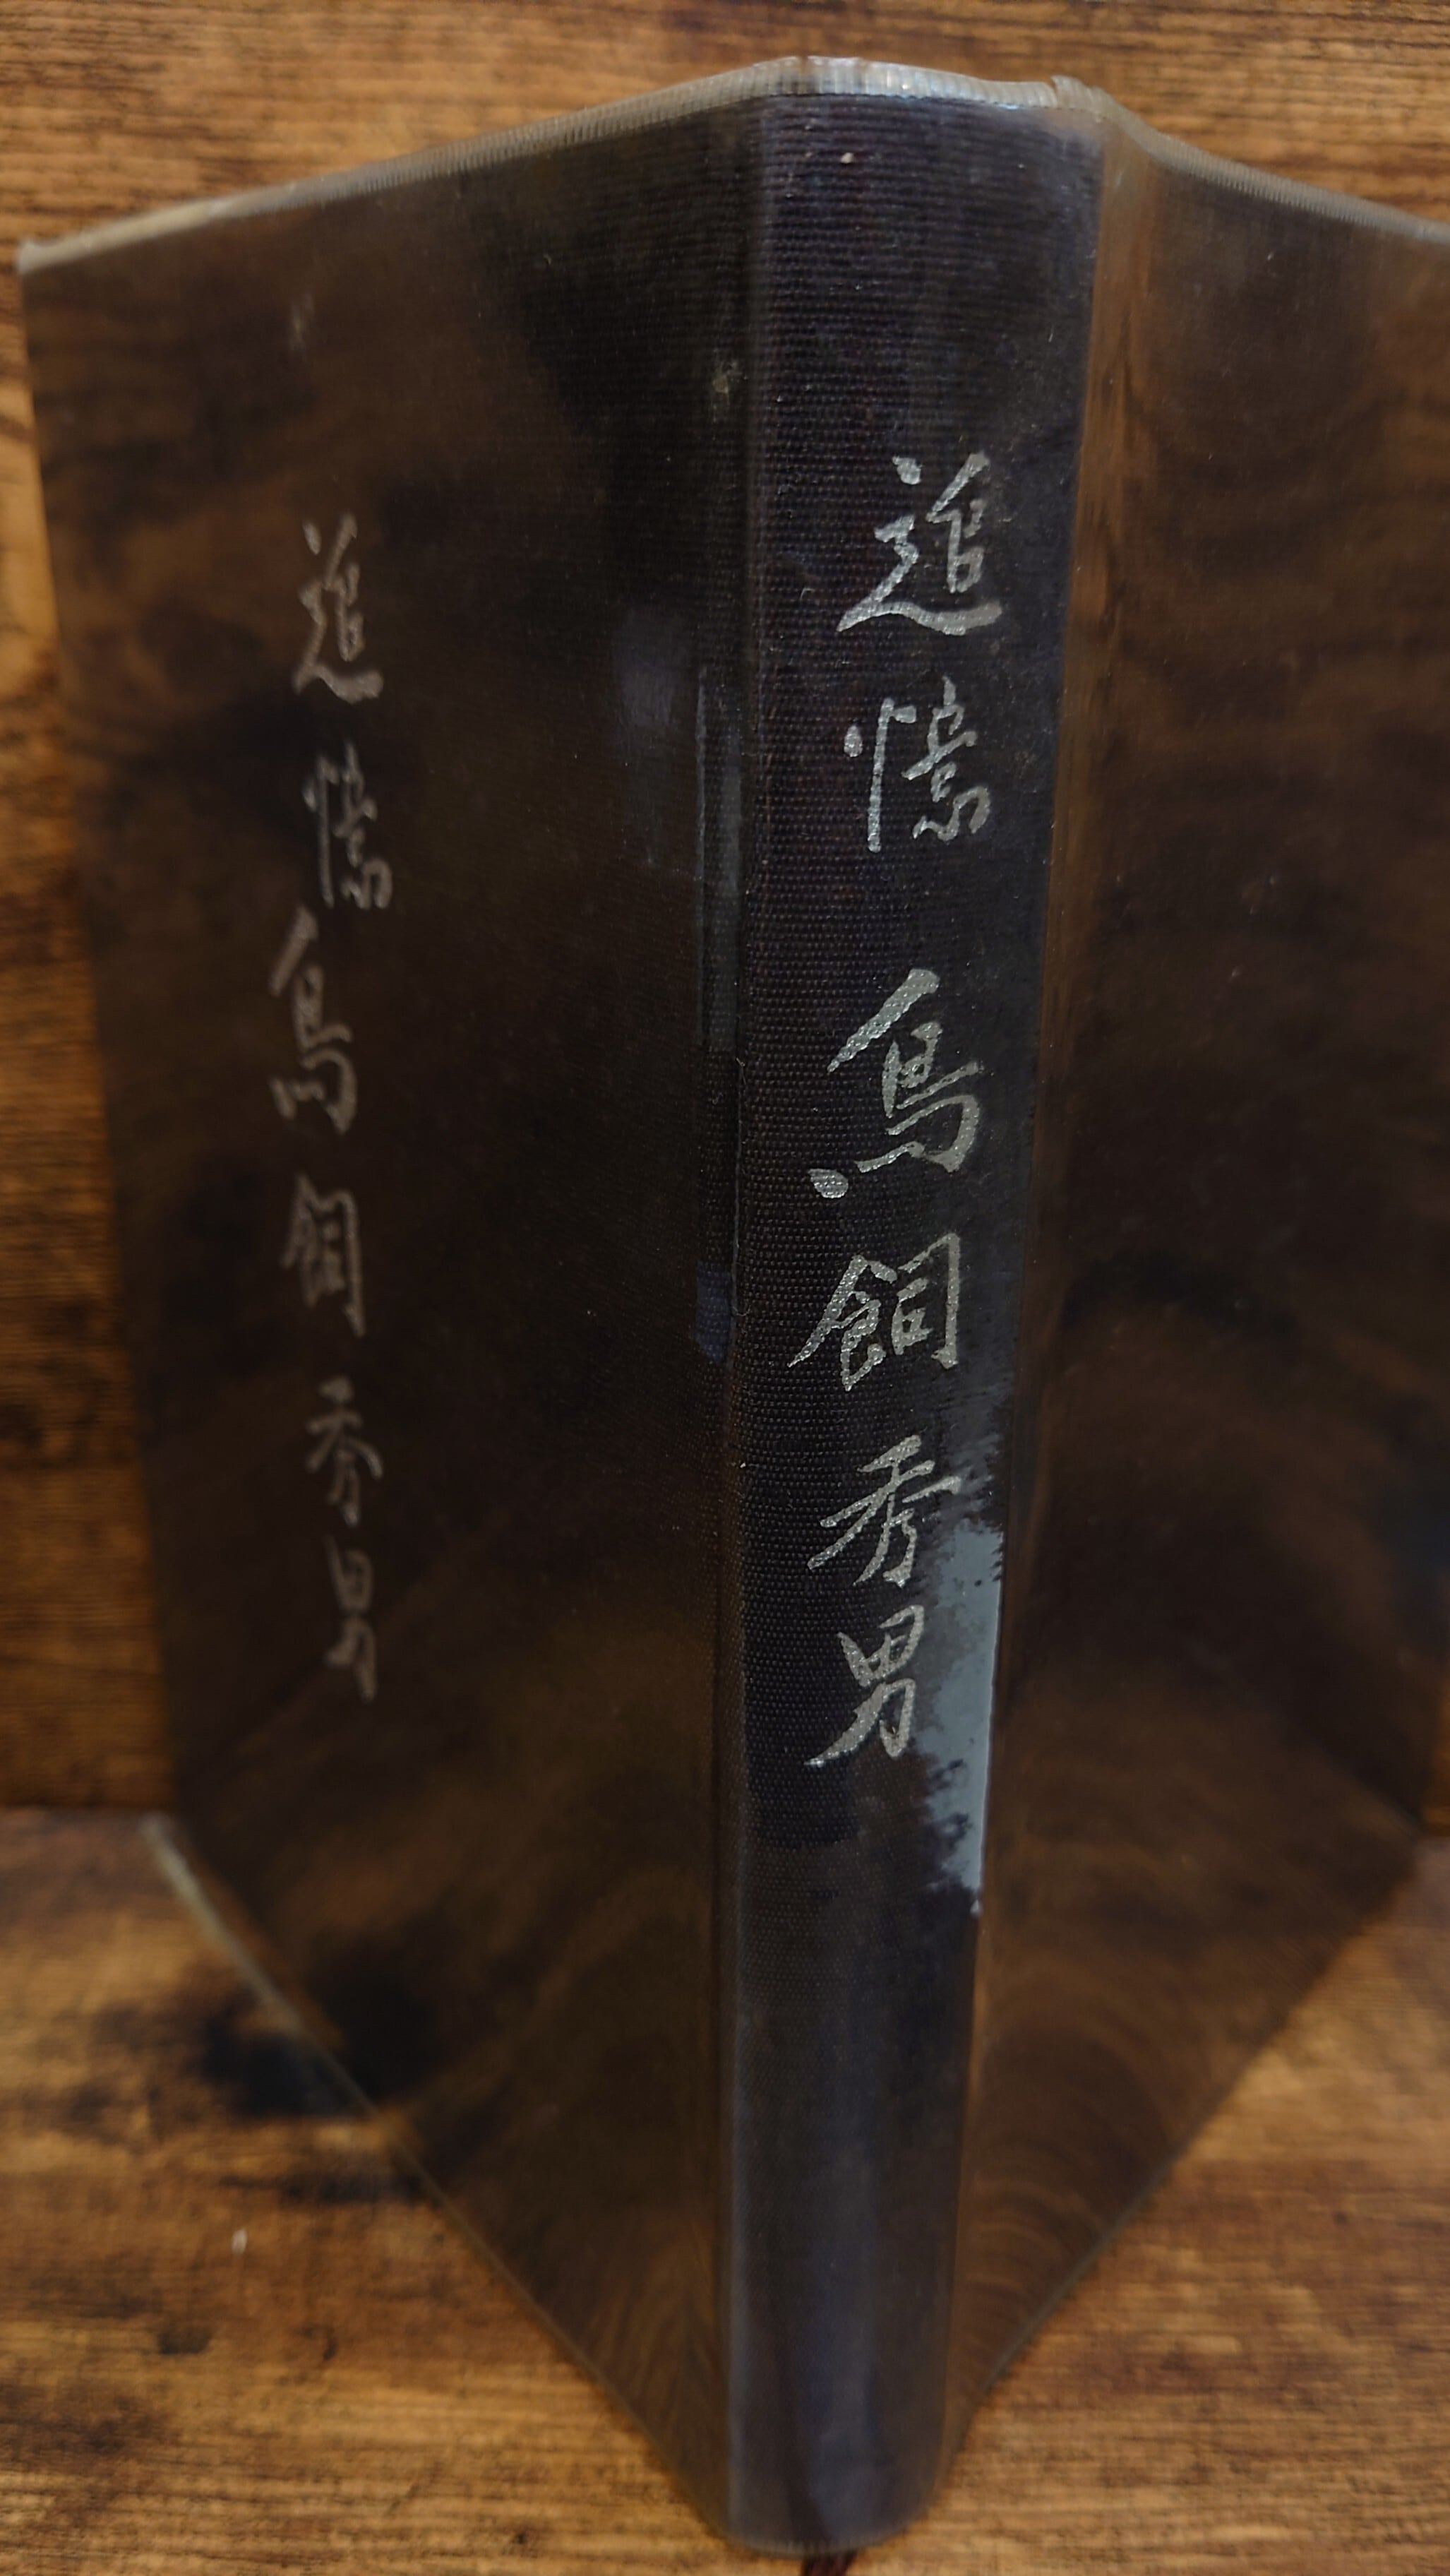 追憶 鳥飼秀男
追憶 鳥飼秀男